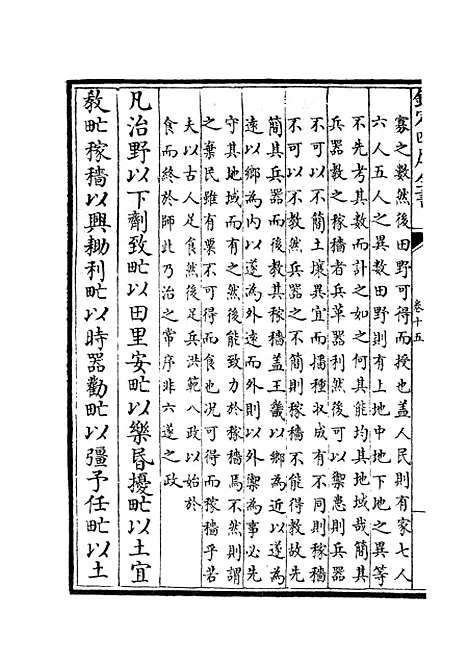 寡之數然後田野可得而授也蓋人民則有家七人
六人五人之異數田野則有上地中地下地之異等
不先考其數而計之如之何其能均其地域哉簡其
兵器教之稼穡者兵革器利然後可以禦患則兵器
不可以不簡土壤異宜而播種收成有不同則稼穡
不可以不教然兵器之不簡則稼穡不能得教故先
簡其兵器而後教其稼穡蓋王畿以鄉為近以遂為
遠以鄉為内以遂為外逺而外則以外禦為事必先
守其地域而有之然後能致力於稼穡焉不然則謂
之棄民雖有粟不可得而食也况可得而稼穡乎若
夫以古人足食然後足兵洪範八政以始於
食而終於師此乃治之常序非六遂之政
凡治野以下劑致甿以田里安甿以樂昬擾甿以土宜
教甿稼穡以興耡利甿以時器勸甿以彊予任甿以土
卷十五